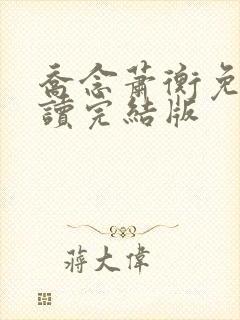 喬念蕭衡免
讀完結版
蔣大偉